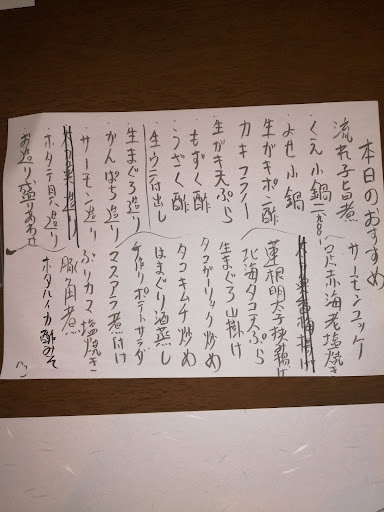 本日のおすすめ
流れ子旨煮
くえ小鍋 一九八〇-
よせ小鍋
生がキポン酢
カキコフライ
生がキ天ぷら
もずく酢
うざく酢
生ウニ付出し
生まぐろ造り
かんぱち造り
サーモン造り
ホタテ貝造り
お造り盛りあわせ
サーモンユッケ
赤海老塩焼き
蓮根明太子挟揚げ
北海タコ天ぷら
生まぐろ山掛け
タコガーリック炒め
タコキムチ炒め
はまぐり酒蒸し
手作りポテトサラダ
マスアラ煮付け
ぶりカマ塩焼き
豚角煮
ホタルイカ酢みそ